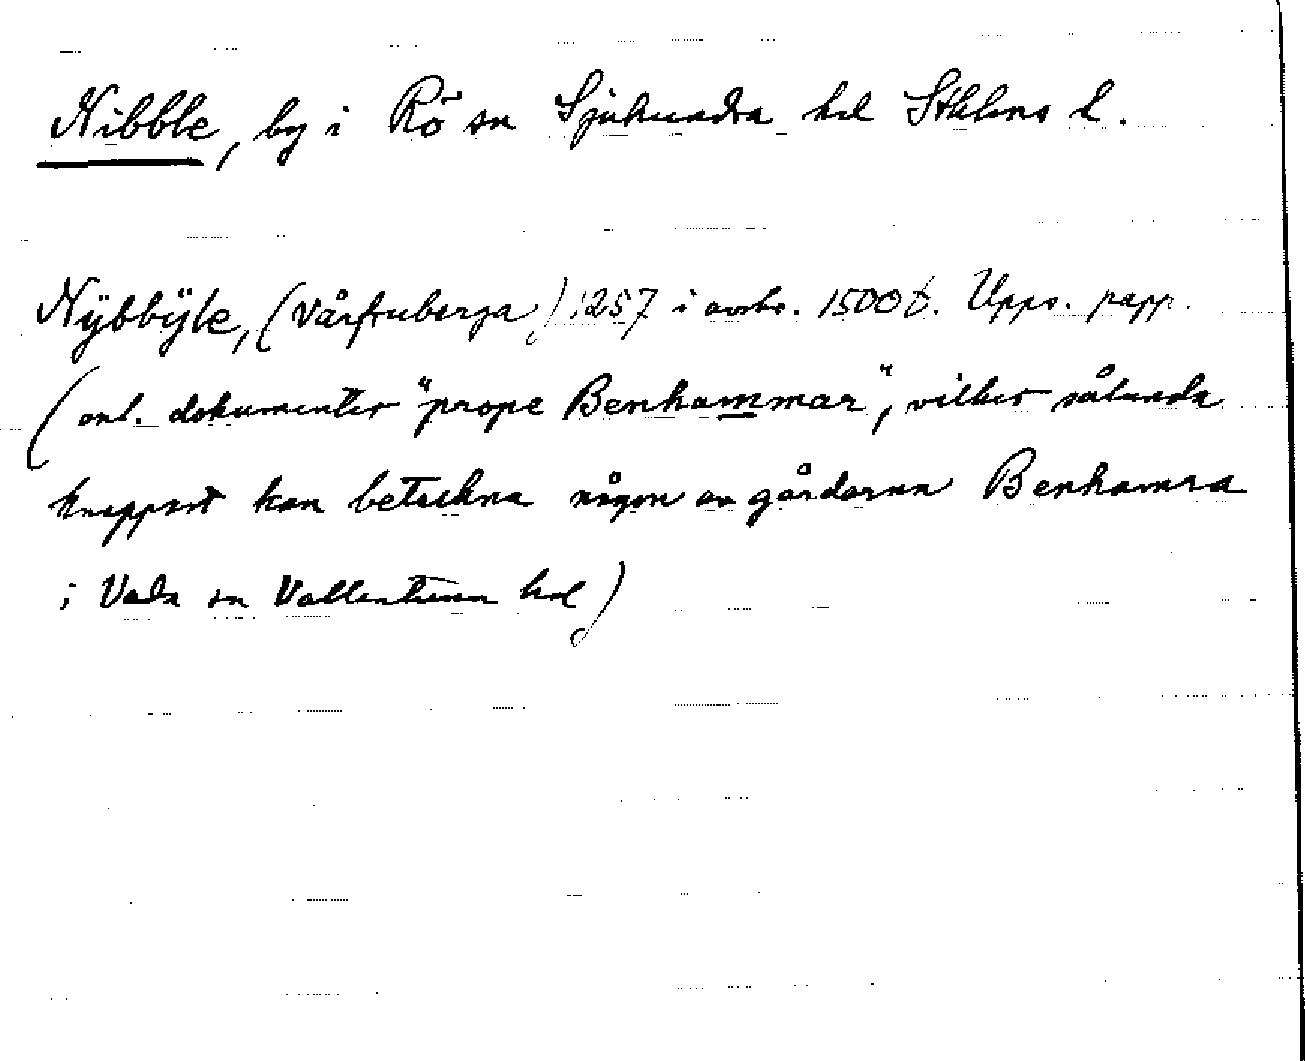 Nibble, by i Rö sn Sjuhundra hd Sthlms l.
Nÿbbÿle, (Vårfruberga) 1257 i avskr. 1500 t. Upps. papp.
(enl. dokumentet "prope Benhammar", vilket sålunda
knappast kan beteckna någon av gårdarna Benhamra
i Vada sn Vallentuna hd)